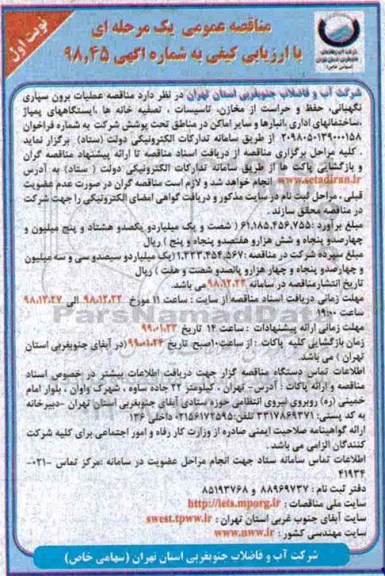 نوبت اول
مناقصه عمومی یک مرحله ای
با ارزیابی کیفی به شماره آگهی ۹۸,۴۵
شرکت آب و فاضلاب جنوبغربی استان تهران در نظر دارد مناقصه عملیات برون سپاری
نگهبانی، حفظ و حراست از مخازن، تاسیسات ، تصفیه خانه ها ،ایستگاههای پمپاژ
،ساختمانهای اداری ،انبارها و سایر اماکن در مناطق تحت پوشش شرکت به شماره فراخوان
۲۰۹۸۰۵۰۱۳۹۰۰۰۱۵۸ از طریق سامانه تدارکات الکترونیکی دولت (ستاد) برگزار نماید
. کلیه مراحل برگزاری مناقصه از دریافت اسناد مناقصه تا ارائه پیشنهاد مناقصه گران
و بازگشایی پاکت ها از طریق سامانه تدارکات الکترونیکی دولت ( ستاد) به آدرس
www.setadiran.ir انجام خواهد شد و لازم است مناقصه گران در صورت عدم عضویت
قبلی ، مراحل ثبت نام در سایت مذکور و دریافت گواهی امضای الکترونیکی را جهت شرکت
در مناقصه محقق سازند .
مبلغ برآورد : ۶۱,۱۸۵,۴۵۶,۷۵۵ ( شصت و یک میلیاردو یکصدو هشتاد و پنج میلیون و
چهارصدو پنجاه و شش هزارو هفتصدو پنجاه و پنج ) ریال
مبلغ سپرده شرکت در مناقصه :۱,۳۳۳,۴۵۴,۵۶۷ (یک میلیاردو سیصدو سی و سه میلیون
و چهارصدو پنجاه و چهار هزارو پانصدو شصت و هفت ) ریال
تاریخ انتشارمناقصه در سامانه ۹۸.۱۲.۲۲ می باشد.
مهلت زمانی دریافت اسناد مناقصه از سایت : ساعت ۱۱ مورخ ۹۸.۱۲.۲۲ الی ۹۸.۱۲.۲۷
ساعت ۱۹:۰۰
مهلت زمانی ارائه پیشنهادات : ساعت ۱۴ تاریخ ۹۹.۰۱.۲۳
زمان بازگشایی کلیه پاکات : از ساعت ۱۰صبح تاریخ ۹۹.۰۱.۲۴ (در آبفای جنوبغربی استان
تهران ) می باشد.
اطلاعات تماس دستگاه مناقصه گزار جهت دریافت اطلاعات بیشتر در خصوص اسناد
مناقصه و ارائه پاکات : آدرس- تهران ، کیلومتر ۲۲ جاده ساوه ، شهرک واوان ، بلوار امام
خمینی (ره) روبروی نیروی انتظامی حوزه ستادی آبفای جنوبغربی استان تهران -دبیرخانه
به کد پستی: ۳۳۱۷۸۶۹۳۷۱ تلفن: ۰۲۱۵۶۱۷۲۵۹۵ داخلی ۱۳۶
ارائه گواهینامه صلاحیت ایمنی صادره از وزارت کار رفاه و امور اجتماعی برای کلیه شرکت
کنندگان الزامی می باشد .
اطلاعات تماس سامانه ستاد جهت انجام مراحل عضویت در سامانه :مرکز تماس ۰۲۱-
۴۱۹۳۴
دفتر ثبت نام : ۸۸۹۶۹۷۳۷ و ۸۵۱۹۳۷۶۸
سایت ملی مناقصات : http://iets.mporg.ir
سایت آبفای جنوب غربی استان تهران : swest.tpww.ir
سایت مهندسی کشور : www.nww.ir
شرکت آب و فاضلاب جنوبغربی استان تهران (سهامی خاص)